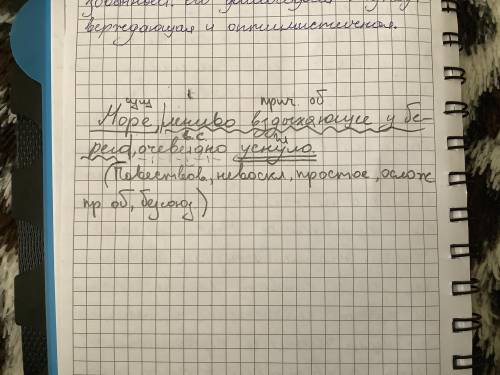 вверждающая и оптимистичная.
сущ прич. об
Море, лениво вздыхающее у бе-
в.с гл
рега, очевидно уснуло.
(Повествов, невоскл, простое, ослож
пр об, безсоюз)